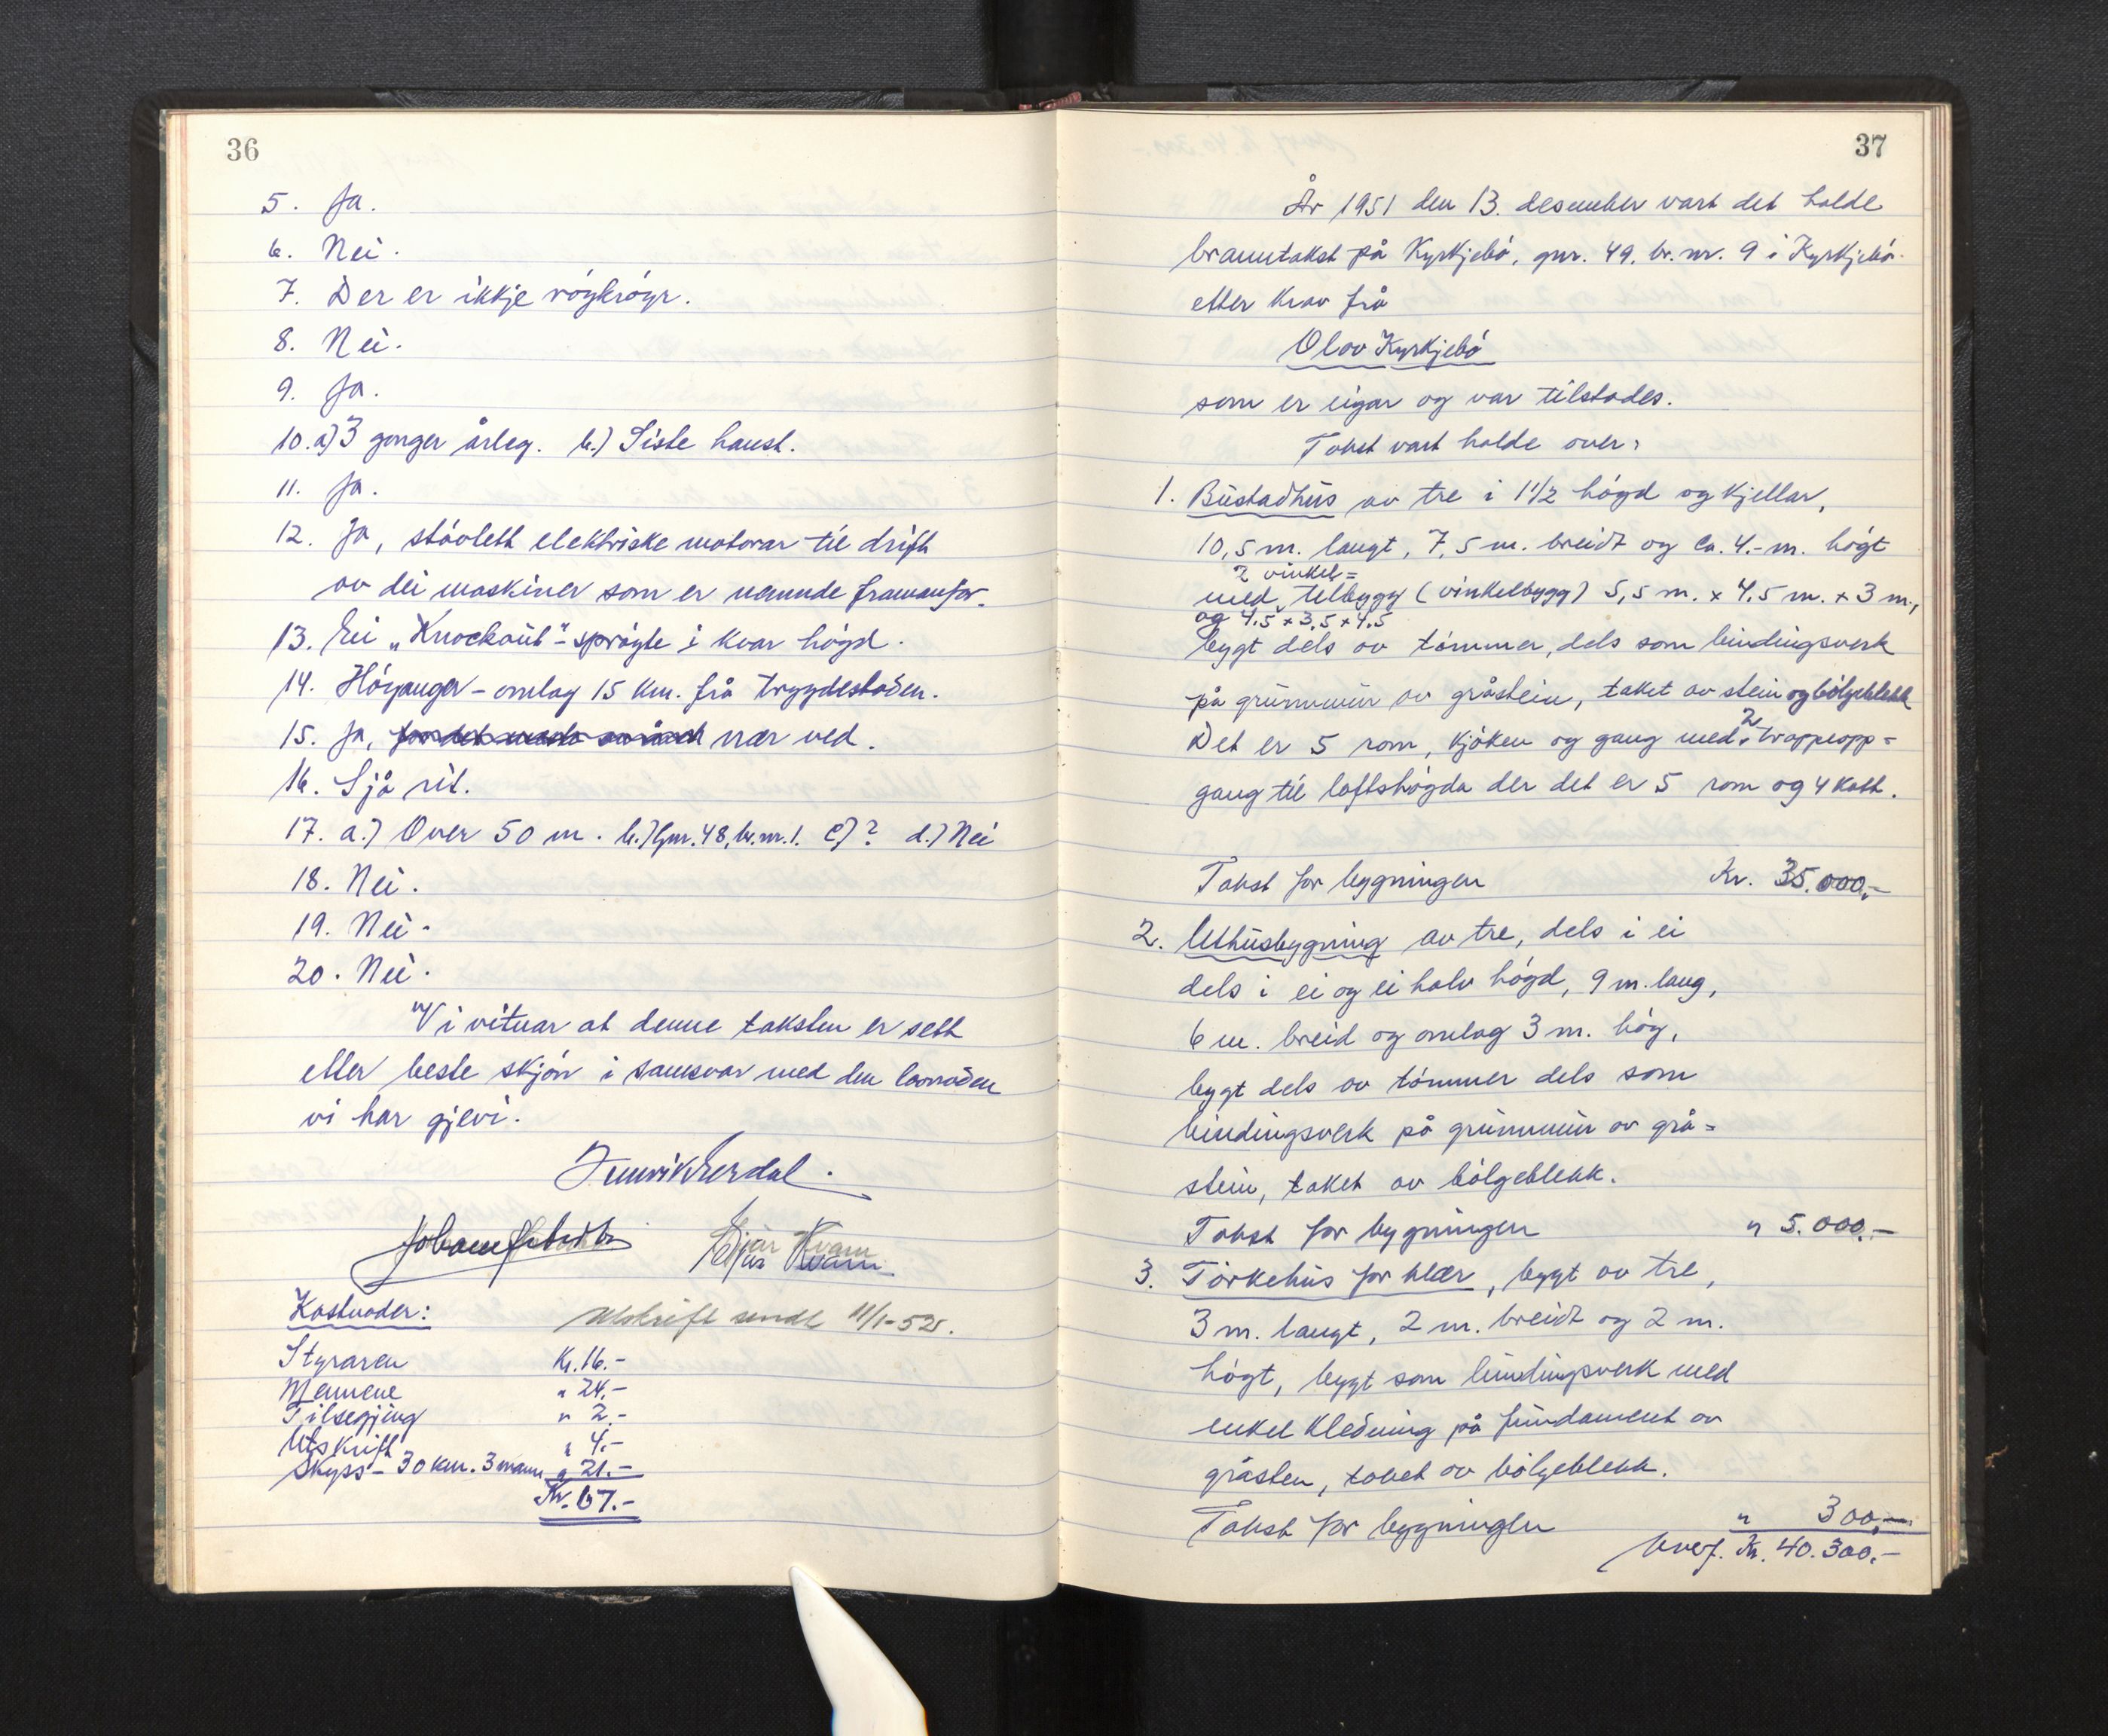 36
5. Ja.
6. Nei.
7. Der er ikkje róykróyr.
8. Nei.
9. Ja.
10. a) 3 gonger årleg. b.) Siste haust.
11. Ja.
12. Ja, stóvtett elektriske motorar til drift
av dei maskiner som er nemnde framanfor.
13. Ei „Knockout"- spróyte i kvar högd.
14. Höyanger - omlag 15 km. frå trygdestaden.
15. Ja, nær ved.
16. Sjå rit.
17. a.) Over 50 m. b.) Gnr. 48, br.nr. 1. c) ? d.) Nei
18. Nei.
19. Nei.
20. Nei.
Vi vitnar at denne taksten er sett
etter beste skjón i samsvar med den lovnaden
vi har gjevi.
Kvam
Kostnader:
Utskrift sendt 11/1-52.
Styraren Kr. 16.-
Mennene " 24.-
Tilsegjing " 2.-
Utskrift " 4.-
Skyss - 30 km. 3 mann " 21.-
Kr. 67.-
37
År 1951 den 13. desember vart det halde
branntakst på Kyrkjebó, gnr. 49, br. nr. 9 i Kyrkjebó.
etter krav frå
Olav Kyrkjebó
som er eigar og var tilstades.
Takst vart halde over:
1. Bustadhus av tre i 1 1/2 högd og kjellar,
10,5 m. langt, 7,5 m. breidt og ca. 4.- m. högt
2 vinkel=
med tilbygg (vinkelbygg) 5,5 m. x 4,5 m. x 3 m.,
og 4,5 x 3,5 x 4,5
bygt dels av tómmer, dels som bindingsverk
på grunnmur av gråstein, taket av stein og bólgeblekk
Det er 5 rom, kjóken og gang med 2 trappeopp=
gang til loftshógda der det er 5 rom og 4 kott.
Takst for bygningen Kr. 35.000,-
2. Uthusbygning av tre, dels i ei
dels i ei og ei halv högd, 9 m. lang,
6 m. breid og omlag 3 m. hóg,
bygt dels av tómmer dels som
bindingsverk på grunnmur av grå=
stein, taket av bólgeblekk.
Takst for bygningen " 5.000.-
3. Tórkehus for klær, bygt av tre,
3 m. langt, 2 m. breidt og 2 m.
högt, bygt som bindingsverk med
enkel kledning på fundament av
gråsten, taket av bólgeblekk.
Takst for bygningen " 300,-
Overf. Kr. 40.300.-